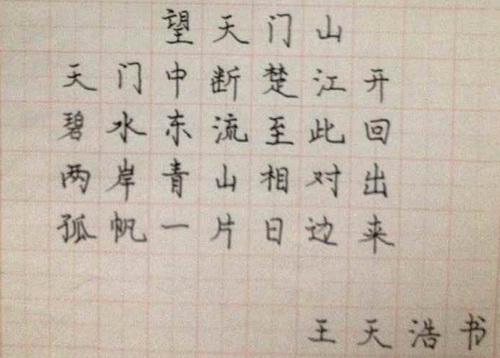 望天门山
天门中断楚江开
碧水东流至此回
两岸青山相对出
孤帆一片日边来
王天浩书